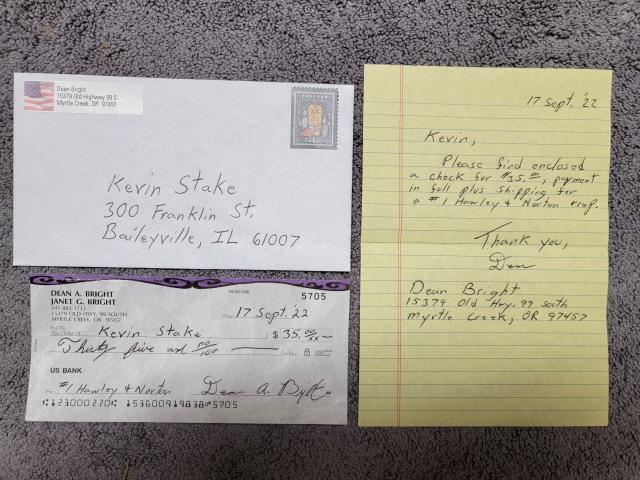 Dean Bright
15379 Old Highway 99 S.
Myrtle Creek, OR 97457
Kevin Stake
300 Franklin St.
Baileyville, IL 61007
17 Sept. '22
Kevin,
Please find enclosed
a check for $35.00, payment
in full plus shipping for
a #1 Hawley & Norton trap.
Thank you,
Dean
Dean Bright
15379 Old Hwy. 99 South
Myrtle Creek, OR 97457
DEAN A. BRIGHT
JANET G. BRIGHT
541-863-1712
15379 OLD HWY. 99 SOUTH
MYRTLE CREEK, OR 97457
5705
Date 17 Sept. '22
Pay To The Order Of Kevin Stake $35.00/xx
Thirty five and no/100 Dollars
US BANK
For #1 Hawley & Norton Dean A. Bright
123000220 153600919838 5705